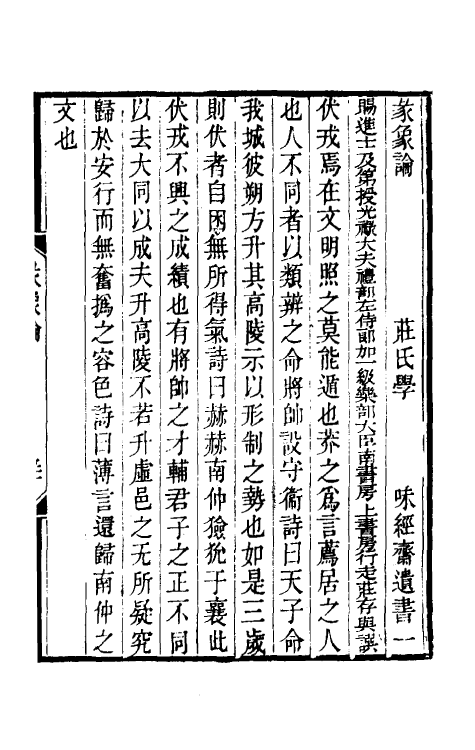 彖象論　莊氏學　味經齋遺書一
賜進士及第授光祿大夫禮部左侍郎加一級樂部大臣南書房上書房行走莊存與譔
伏戎焉在文明照之莫能遁也莽之爲言薦居之人
也人不同者以類辨之命將帥設守衞詩曰天子命
我城彼朔方升其高陵示以形制之勢也如是三歲
則伏者自困無所得氣詩曰赫赫南仲獫狁于襄此
伏戎不興之成績也有將帥之才輔君子之正不同
以去大同以成夫升高陵不若升虛邑之无所疑究
歸於安行而無奮撝之容色詩曰薄言還歸南仲之
文也
彖象論